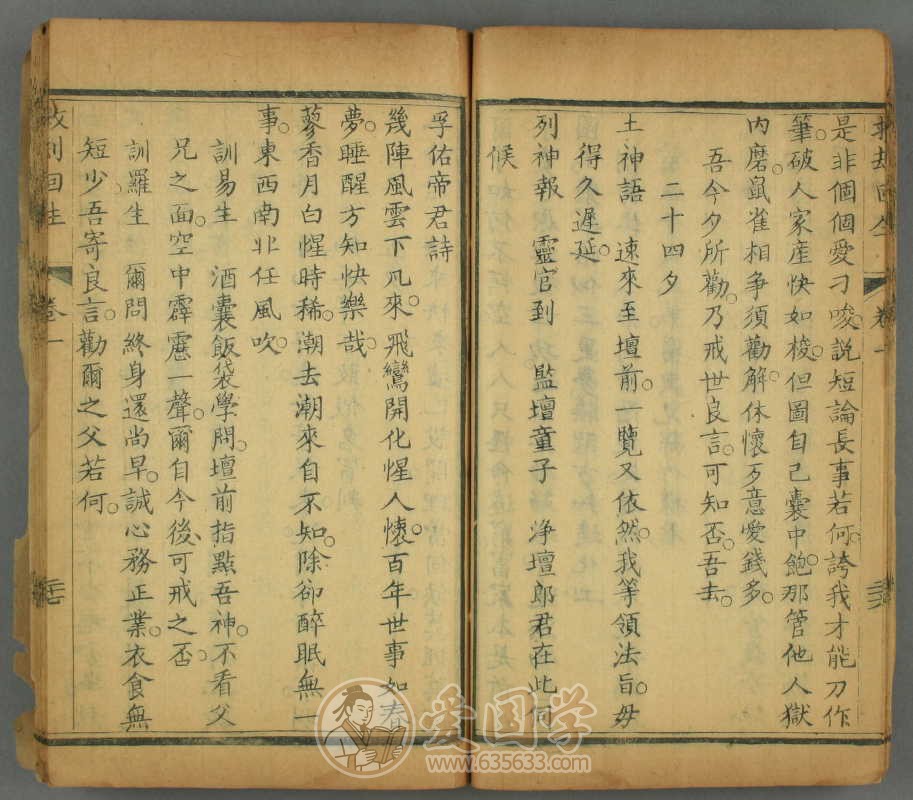 是非個個愛刁唆。說短論長事若何。誇我才能刀作
筆。破人家產快如梭。但圖自己囊中飽。那管他人獄
內磨。鼠雀相争須勸解。休懷歹意愛錢多。
吾今夕所勸。乃戒世良言。可知否。吾去。
二十四夕
土神語 速來至壇前。一覽又依然。我等領法旨。毋
得久遲延。
列神報 靈官到 功。監壇童子 净壇郎君在此伺
候
孚佑帝君詩
幾陣風雲下凡來。飛鸞開化惺人懷。百年世事如春
夢。睡醒方知快樂哉。
蓼香月白惺時稀。潮去潮來自不知。除卻醉眠無一
事。東西南北任風吹。
訓易生 酒囊飯袋學問。壇前指點吾神。不看父
兄之面。空中霹靂一聲。爾自今後可戒之否。
訓羅生 爾問終身還尚早。誠心務正業。衣食無
短少。吾寄良言。勸爾之父若何。
回生
卷一
卷一
爱国学
www.635633.com